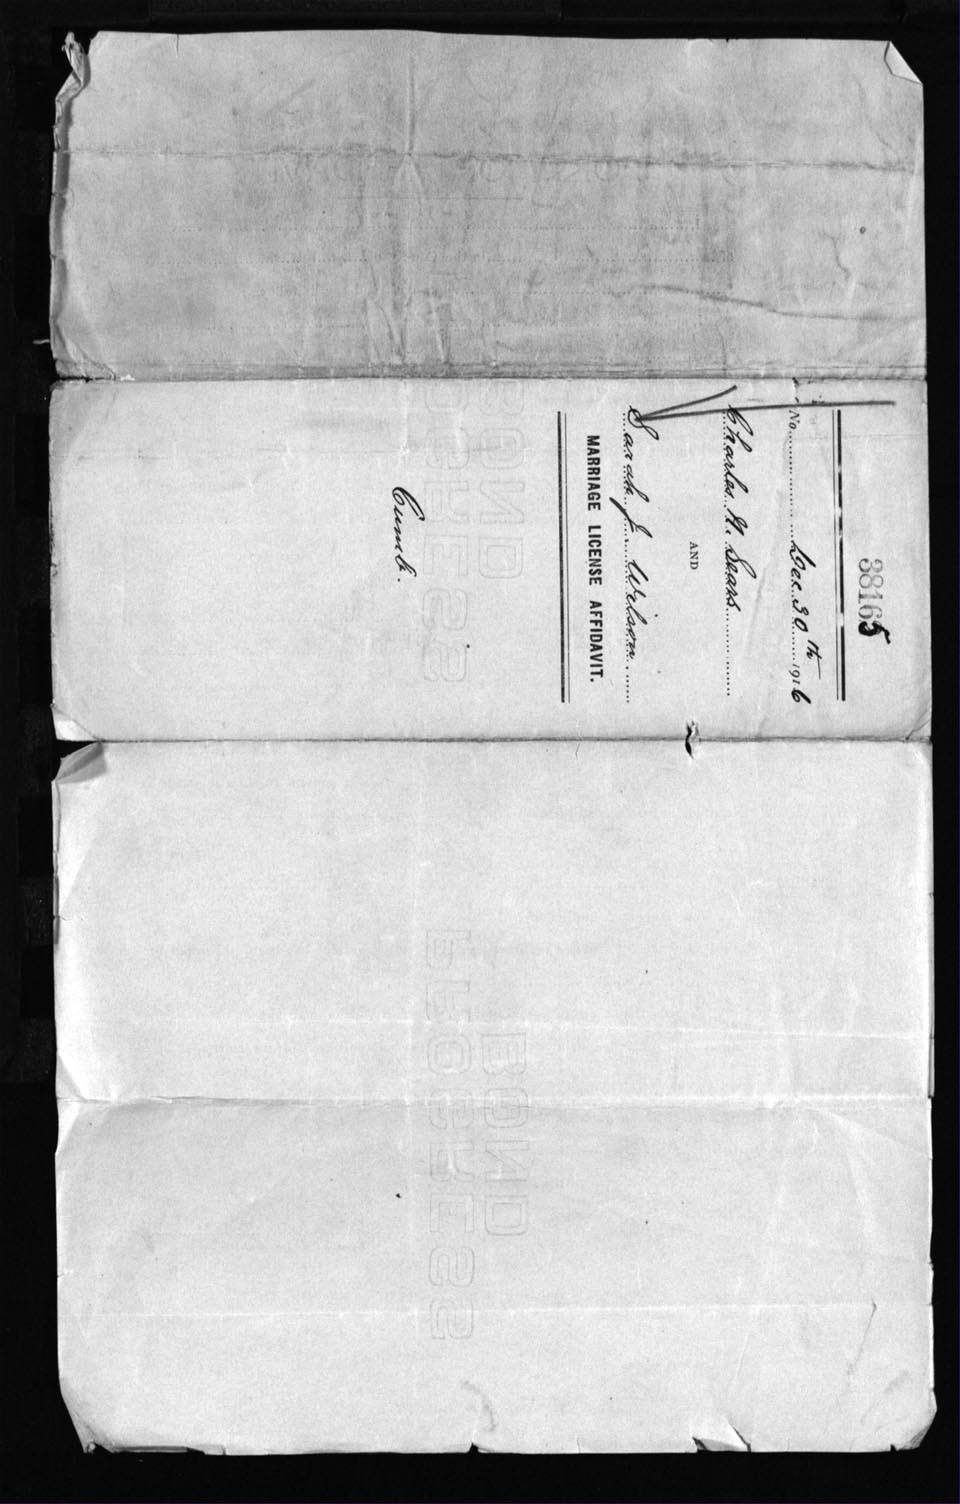 38165
No. Dec. 30th 1916
Charles H. Sears
AND
Sarah J. Wilson
MARRIAGE LICENSE AFFIDAVIT.
Cumb.
BOND
BOND